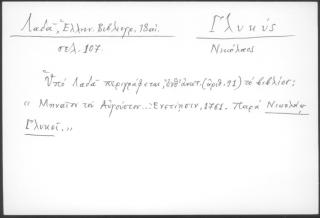 Λαδᾶ, Ἑλλην. Βιβλιογρ. 18 αἰ.
σελ. 107
Γλυκύς
Νικόλαος
Ὑπό Λαδᾶ περιγράφεται, (ἀριθ. 91) τό βιβλίον:
"Μηναῖον τοῦ Αὐγούστου...: Ἐνετίησιν, 1761. Παρά Νικολάῳ
Γλυκεῖ."